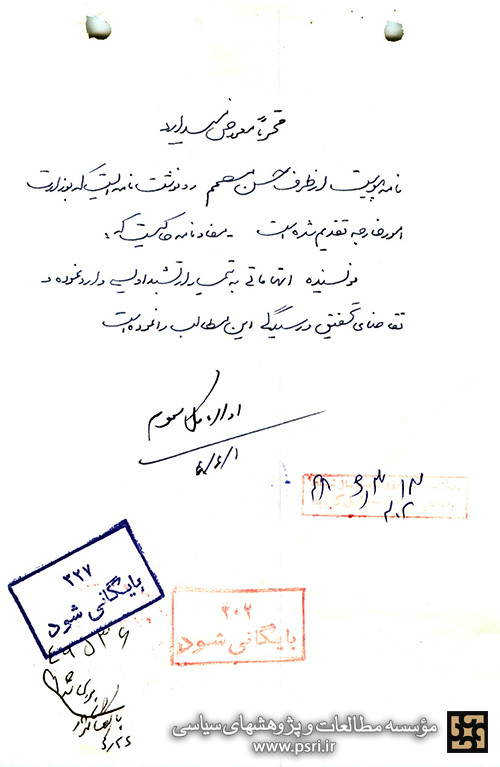 محترماً معروض میدارد
نامه پیوست از طرف حسن مصمم رونوشت نامه ایست که بوزارت
امور خارجه تقدیم شده است مفاد نامه حاکیست که:
نویسنده اتهاماتی به تیمسار ارتشبد اویسی وارد نموده و
تقاضای تحقیق و رسیدگی این مطالب را نموده است
اداره کل سوم
۳۲۷
بایگانی شود
۳۰۲
بایگانی شود
مؤسسه مطالعات و پژوهشهای سیاسی
www.psri.ir